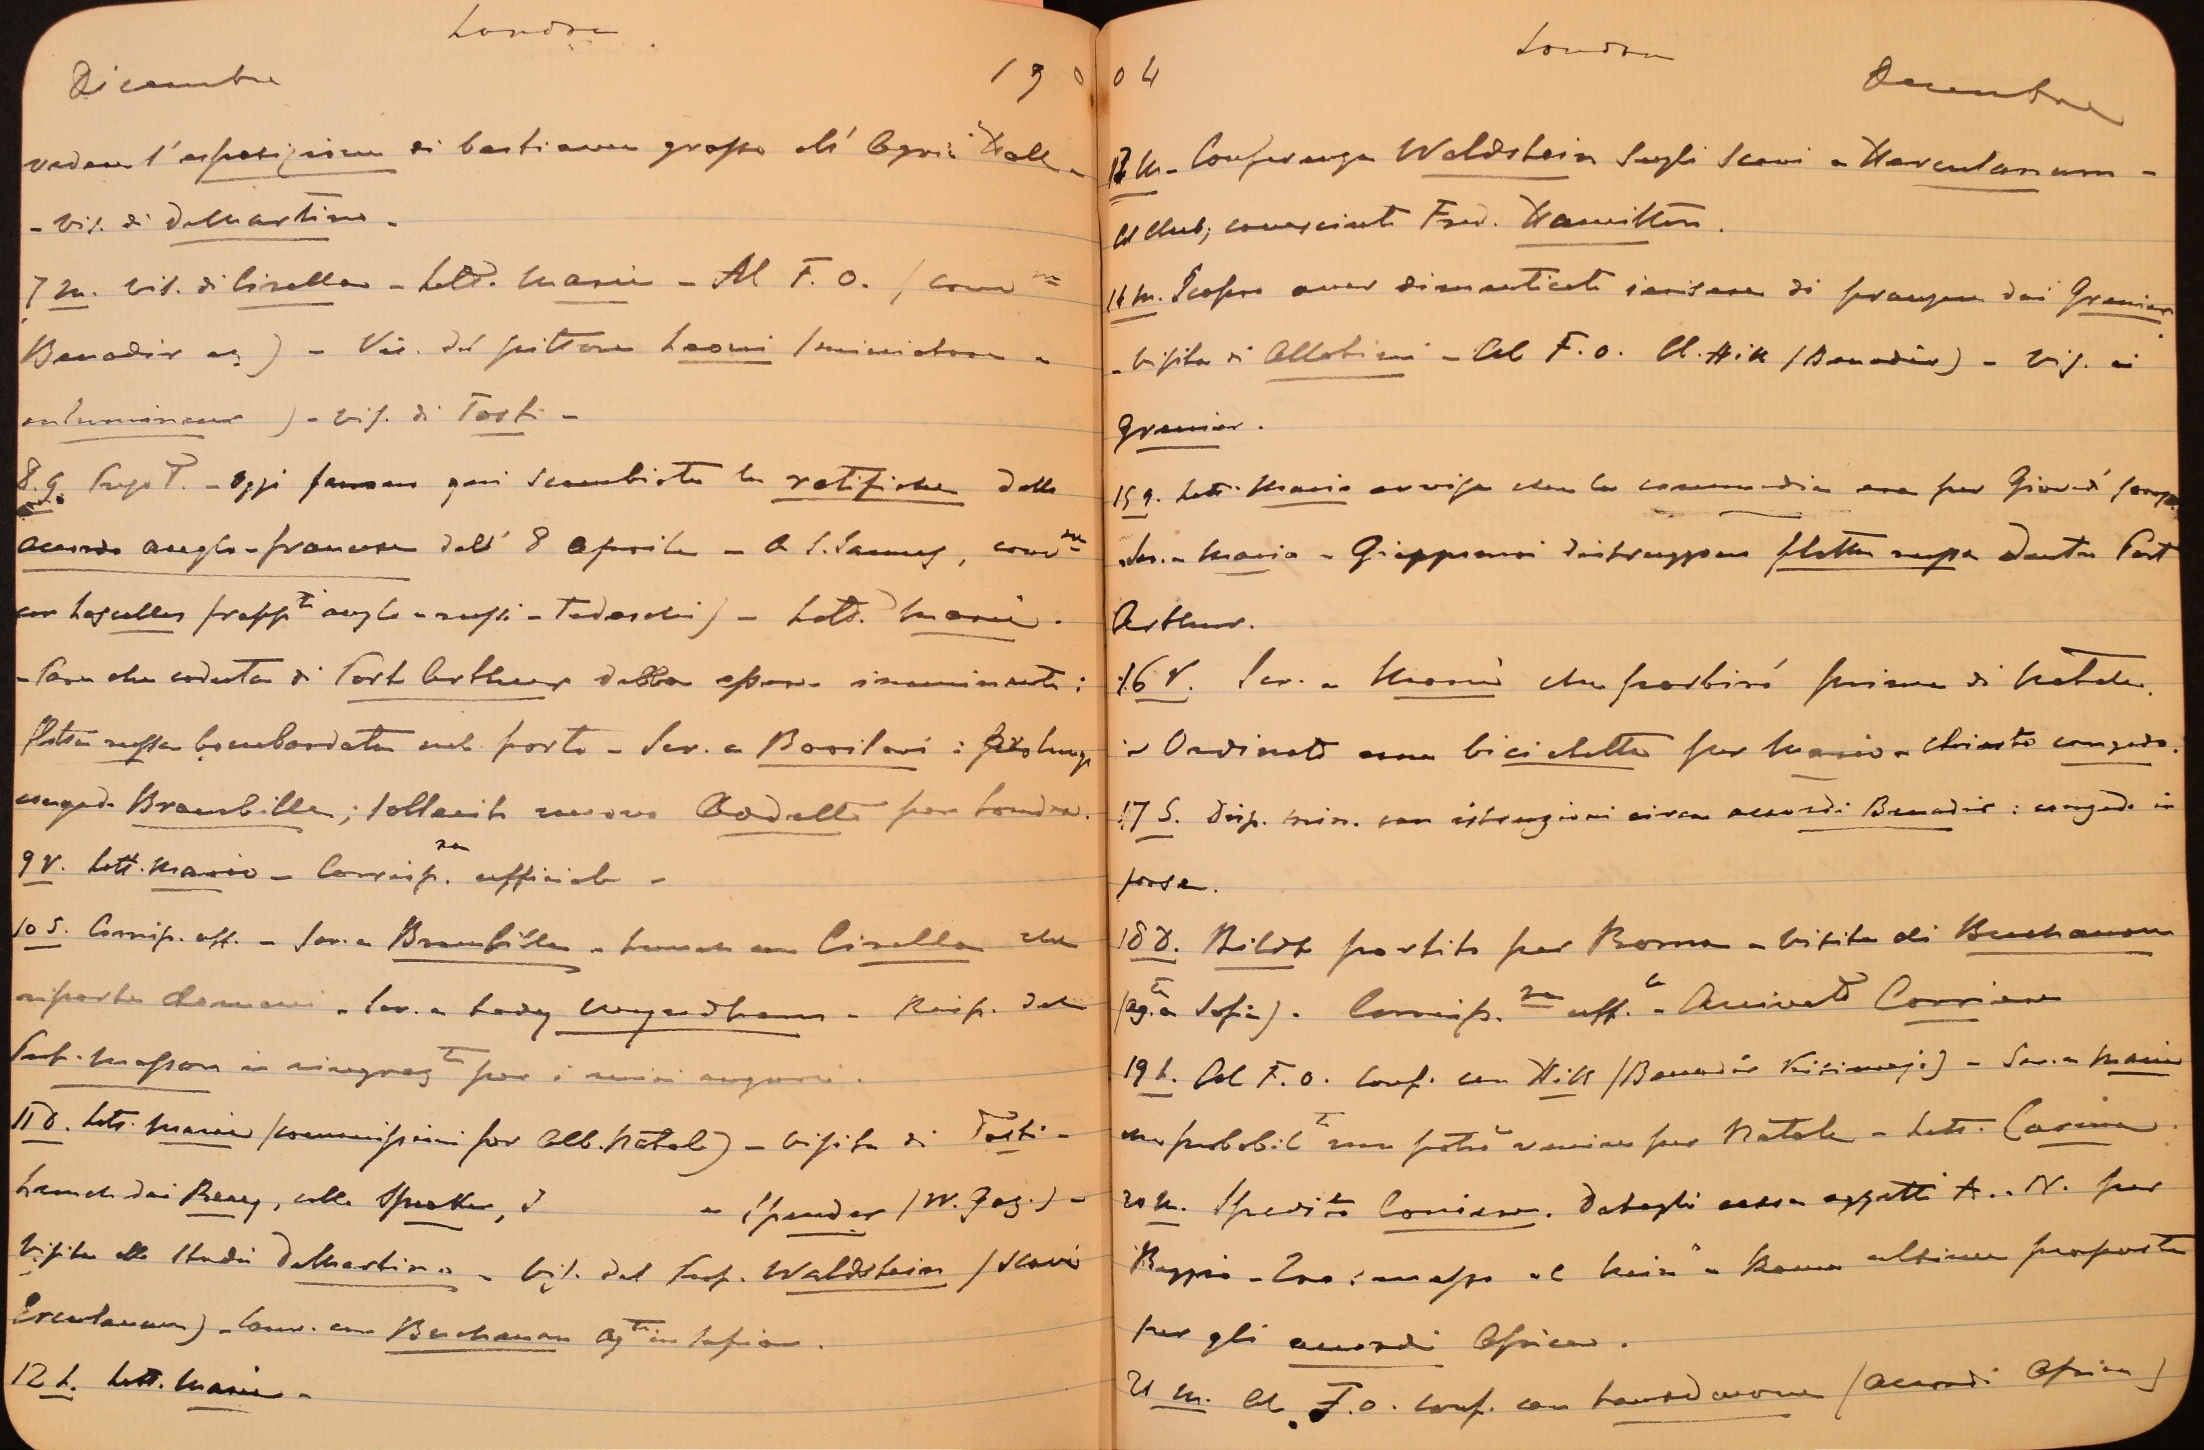 Londra
Dicembre 190
vedere l'esposizione di bestiame grasso all' Agric. Hall -
- Vis. di DeMartino -
7 m. Vis. di Cirella - Lett. Mario - Al F. O. (conv.ne
Benadir ) - Vis. del pittore Leoni (miniatore -
enlumineur) - vis. di Tosti -
8. g. - Oggi furono qui scambiate le ratifiche dello
accordo anglo-francese dell' 8 aprile - A S. James, conv.ne
con Lascelles (rapp.ti anglo-russi-tedeschi) - Lett. Mario.
- Pare che caduta di Port Arthur debba essere imminente:
flotta russa bombardata nel porto - Scr. a :
congedo Brambilla; solleciti nuovo Addetto per Londra.
9 V. Lett. Mario - Corrisp.za ufficiale -
10 S. Corrisp. uff. - Scr. a Brambilla - Lunch con Cirella che
riparte domani - Scr. a Lady Wyndham - Risp. del
in ringraz.to per i miei auguri.
11 D. Lett. Mario (commissioni per Alb. Natale) - Visita di Tosti -
Lunch dai , collo Speaker, - Spender (W. Gaz.) -
Visita allo studio DeMartino - Vis. del Prof. Waldstein (scavi
Erculaneum) - Conv. con Buchanan Ag.te in Sofia.
12 L. Lett. Mario -
04 Londra Decembre
13 M. - Conferenza Waldstein sugli scavi a Herculaneum -
Al Club, conosciuto Fred. Hamilton.
14 M. Scopro aver dimenticato iersera di pranzare dai Grenier
- Visita di - Al F. O. Cl. Hill (Benadir) - Vis. ai
Grenier.
15 g. Lett. Mario avvisa che la commendia era per Giovedì
Scr. a Mario - Giapponesi distruggono flotta russa dentro Port
Arthur.
16 V. Scr. a Mario che partirò prima di Natale.
Ordinato una bicicletta per Mario - Chiesto congedo.
17 S. Disp. min. con istruzioni circa accordi Benadir: congedo in
forse.
18 D. Bildt partito per Roma - Visita di Buchanan
(ag.te a Sofia). Corrisp.za uff.le - Arrivato Corriere
19 L. Al F. O. Conf. con Hill (Benadir Kisimajo) - Scr. a Mario
che probabil.te non potrò venire per Natale - Lett. Carina.
20 M. Spedito Corriere. per
al Min.o a Roma ultime proposte
per gli accordi Africa.
21 M. Al F. O. Conf. con Lansdowne (accordi Africa)